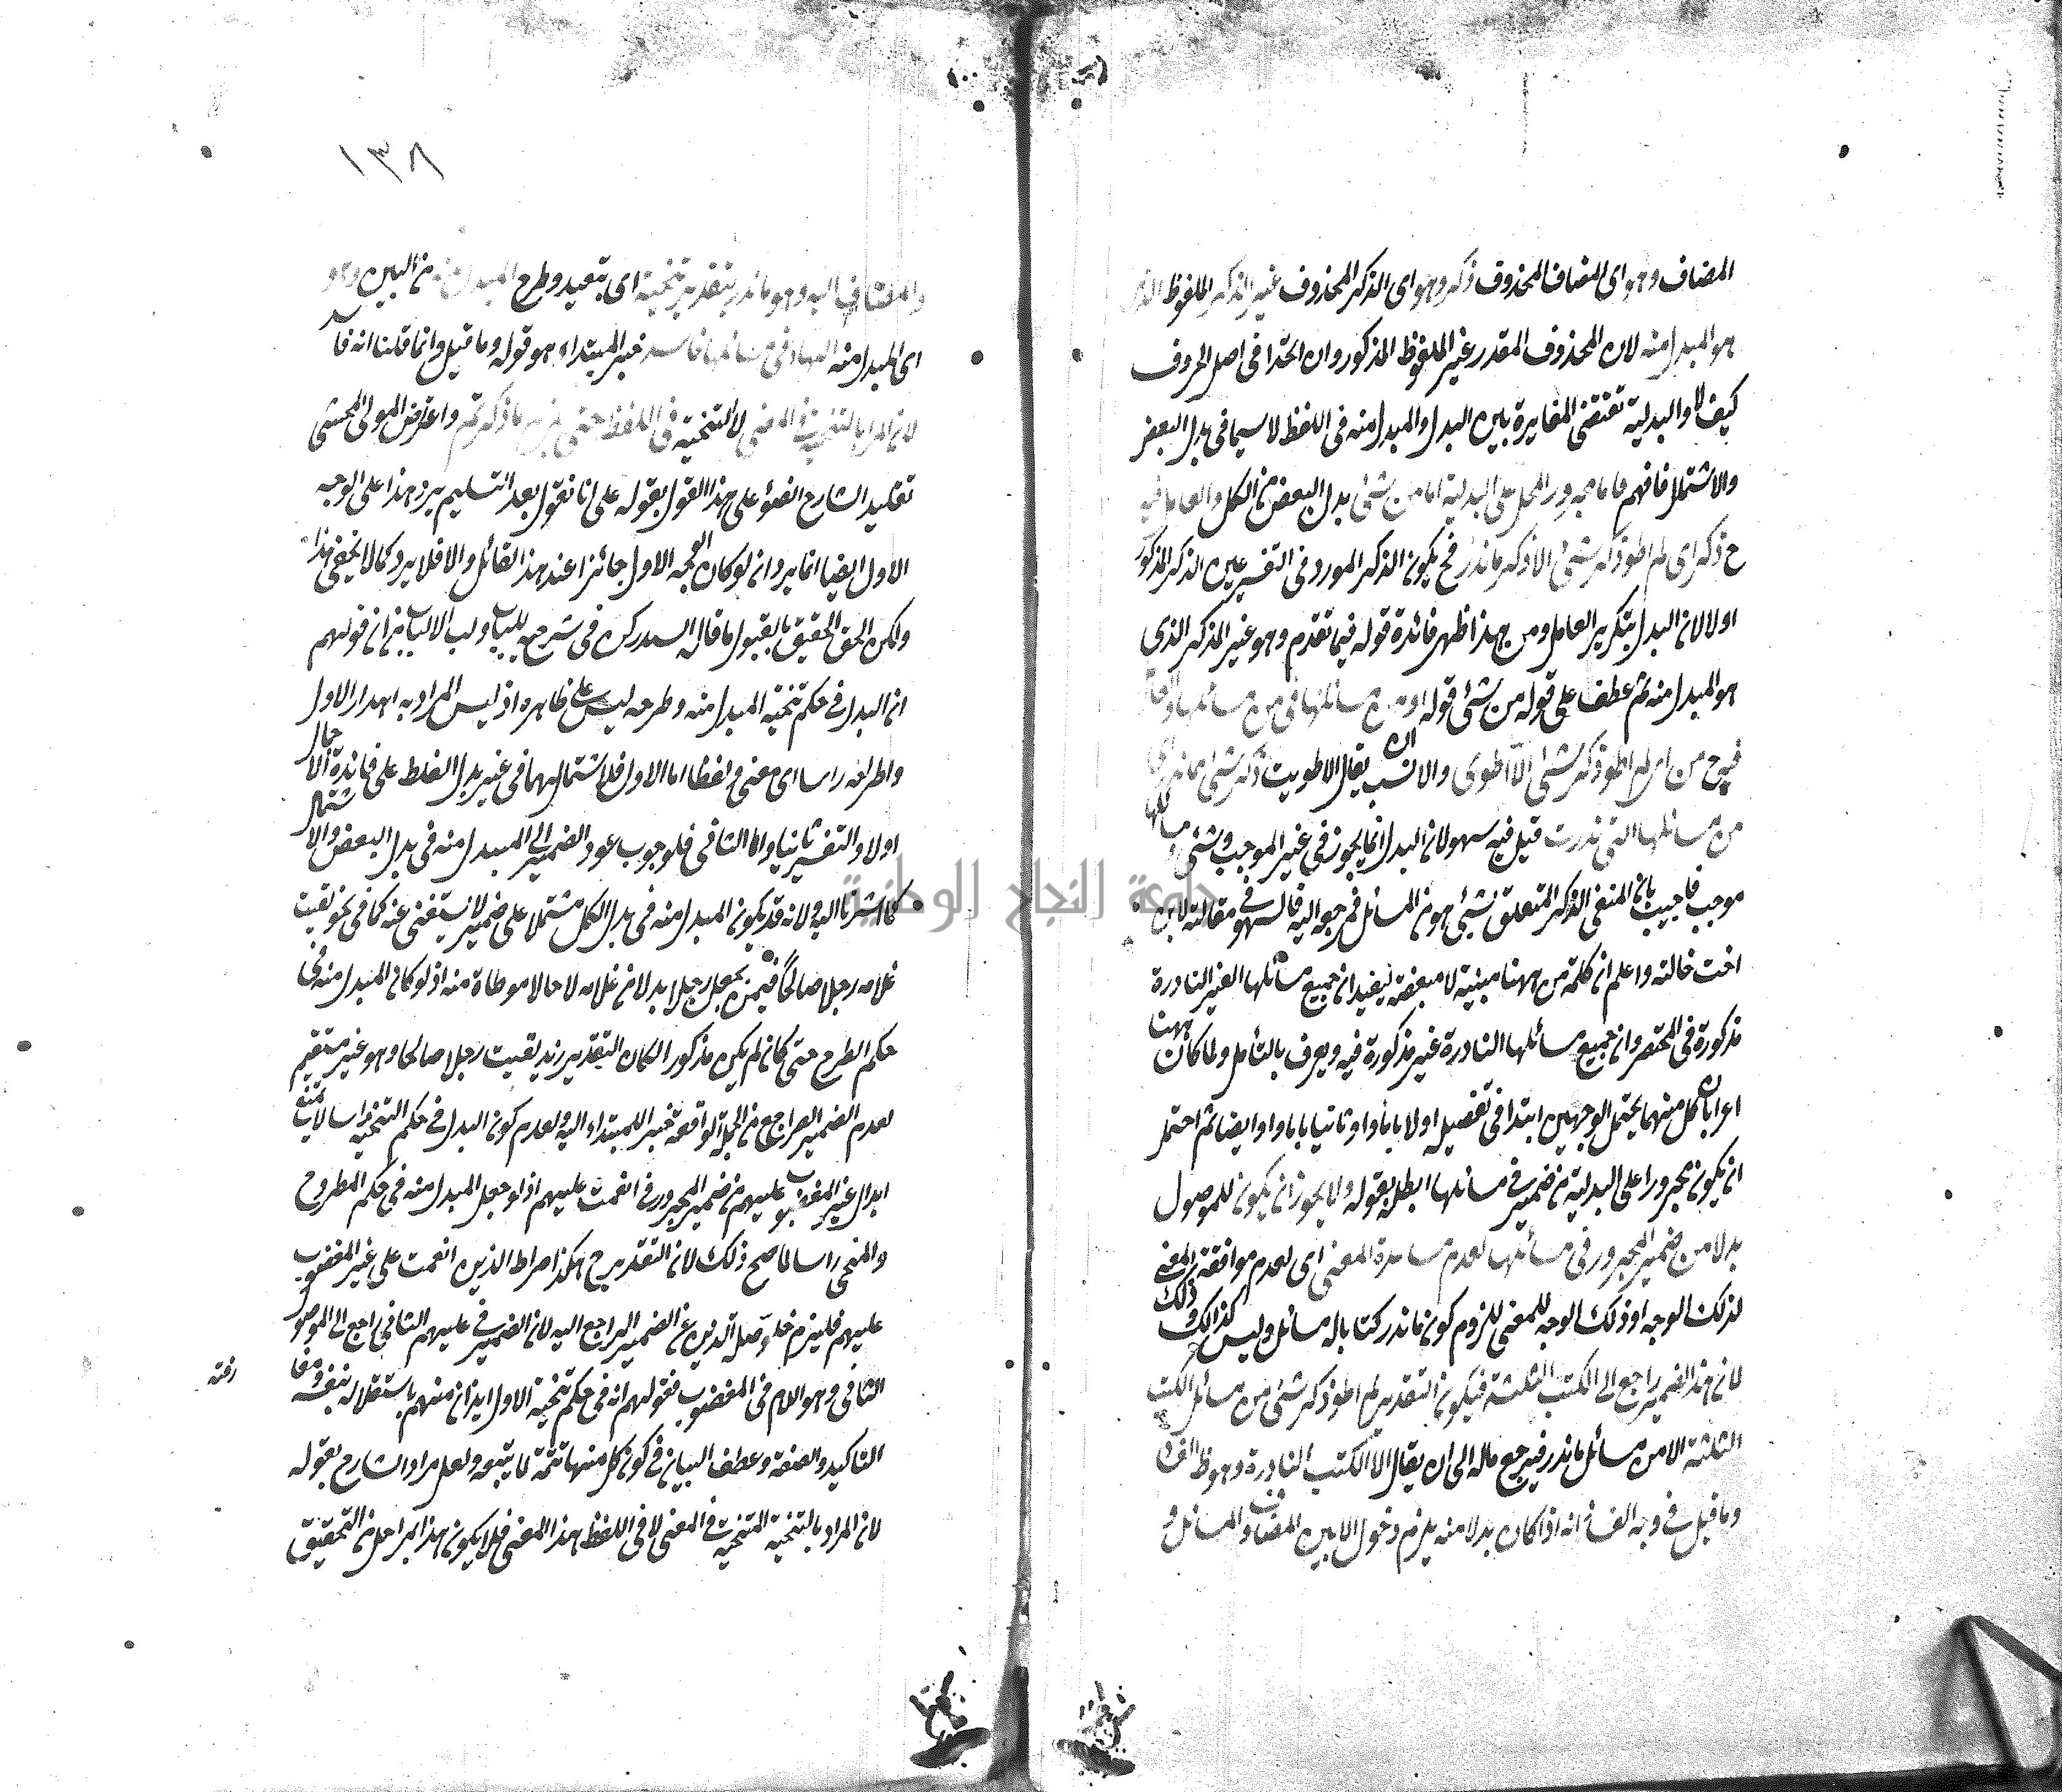 المضاف وهو اى المضاف المحذوف ذكر وهو اى الذكر المحذوف غير الذكر الملفوظ الذى
هو المبدل منه لان المحذوف المقدر غير الملفوظ المذكور وان اتحدا فى اصل الحروف
كيف لا والبدلية تقتضى المغايرة بين البدل والمبدل منه فى اللفظ لا سيما فى بدل البعض
والاشتمال فافهم فاما مجرور المحل على البدلية اما من شئ بدل البعض من الكل والعامل فيه
ح ذكر اى لم اطو ذكر شئ الا ذكر ما ندر فح يكون الذكر المورد فى التفسير عين الذكر المذكور
اولا لان البدل بتكرير العامل ومن هذا ظهر فائدة قوله فيما تقدم وهو غير الذكر الذى
هو المبدل منه ثم عطف على قوله من شئ قوله او من مسائلها فى من مسائلها
من اى لم اطو ذكر شئ الا اطوى والانسب ان يقال الا طويت ذكر شئ مما ندر اى
من مسائلها التى ندرت قيل فيه سهو لان البدل انما يجوز فى غير الموجب وشئ من مسائلها
موجب فاجيب بان المنفى الذكر المتعلق بشئ هو من المسائل فمرجعه اليه فالسهو فى مقالته لابن
اخت خالته واعلم ان كلمة من ههنا مبنية لا مبعضة ليفيد ان جميع مسائلها الغير النادرة
مذكورة فى المختصر وان جميع مسائلها النادرة غير مذكورة فيه ويعرف بالتأمل ولما كان ههنا
اعرابان كل منهما يحتمل الوجهين ابتدا فى تفصيله اولا باما واو وثانيا باما واو ايضا ثم احتمل
ان يكون مجرورا على البدلية من ضمير فى مسائلها ابطله بقوله ولا يجوز ان يكون للموصول
بدلا من ضمير المجرور فى مسائلها لعدم مساعدة المعنى اى لعدم موافقة المعنى
لذلك الوجه او ذلك الوجه للمعنى للزوم كون ما ندر كتابا له مسائل وليس كذلك وذلك
لان هذا الضمير راجع الى الكتب الثلثة فيكون التقدير لم اطو ذكر شئ من مسائل الكتب
الثلثة الا من مسائل ما ندر فيرجع ماله الى ان يقال الا الكتب النادرة وهو ظ الفسا
وما قيل فى وجه الفساد انه اذا كان بدلا منه يلزم دخول الا بين المضاف المسائل و
١٣٨
والمضاف اليه وهو ما ندر بتقدير تنحية اى بتعيد وطرح المبدل منه من البين وهو
اى المبدل منه الهاء فى مسائلها فاسد خبر المبتداء وهو قوله وما قيل وانما قلنا انه فاسد
لان المراد بالتنحية فى المعنى لا التنحية فى اللفظ حتى يلزم ما ذكرتم واعترض المولى المحشى
تقليد الشارح الغنؤ على هذا القول بقوله على انا نقول بعد التسليم يرد هذا على الوجه
الاول ايضا انما يرد ان لو كان الوجه الاول جائزا عند هذا القائل والا فلا يرد كما لا يخفى هذا
ولكن الحق الحقيق بالقبول ما قاله السيد ركن فى شرحه للباب ولب الالباب من ان قولهم
ان البدل فى حكم تنحية المبدل منه وطرحه ليس على ظاهره اذ ليس المراد به اهدار الاول
واطراحه راسا اى معنى ولفظا اما الاول فلاشتمالهما فى غير بدل الغلط على فائدة الاجمال
اولا والتفسير ثانيا واما الثانى فلوجوب عود الضمير الى المبدل منه فى بدل البعض والاشتمال
كما اشرنا اليه ولانه قد يكون المبدل منه فى بدل الكل مشتملا على ضمير لا يستغنى عنه كما فى نحو لقيت
غلامه رجلا صالحا فيمن يجعل رجلا بدلا من غلامه لا حالا موطاة منه اذ لو كان المبدل منه فى
حكم الطرح حتى كان لم يكن مذكورا لكان التقدير زيد لقيت رجلا صالحا وهو غير مستقيم
لعدم الضمير الراجع من الجملة الواقعة خبرا للمبتداء اليه ولعدم كون البدل فى حكم التنحية راسا لا يمتنع
ابدال غير المغضوب عليهم من ضمير المجرور فى انعمت عليهم اذ لو جعل المبدل منه فى حكم المطروح
والمنحى راسا لما صح ذلك لان التقدير ح هكذا صراط الذين انعمت على غير المغضوب
عليهم فيلزم خلو صلة الذين عن الضمير الراجع اليه لان الضمير فى عليهم الثانى راجع الى الموصول
الثانى وهو اللام فى المغضوب فقولهم انه فى حكم تنحية الاول ايذان منهم باستقلاله بنفسه ومفارقته
التاكيد والصفة وعطف البيان فى كون كل منها تتمة لما يتبعه ولعل مراد الشارح بقوله
لان المراد بالتنحية التنحية فى المعنى لا فى اللفظ هذا المعنى فلا يكون هذا بمراحل من التحقيق
جامعة النجاح الوطنية